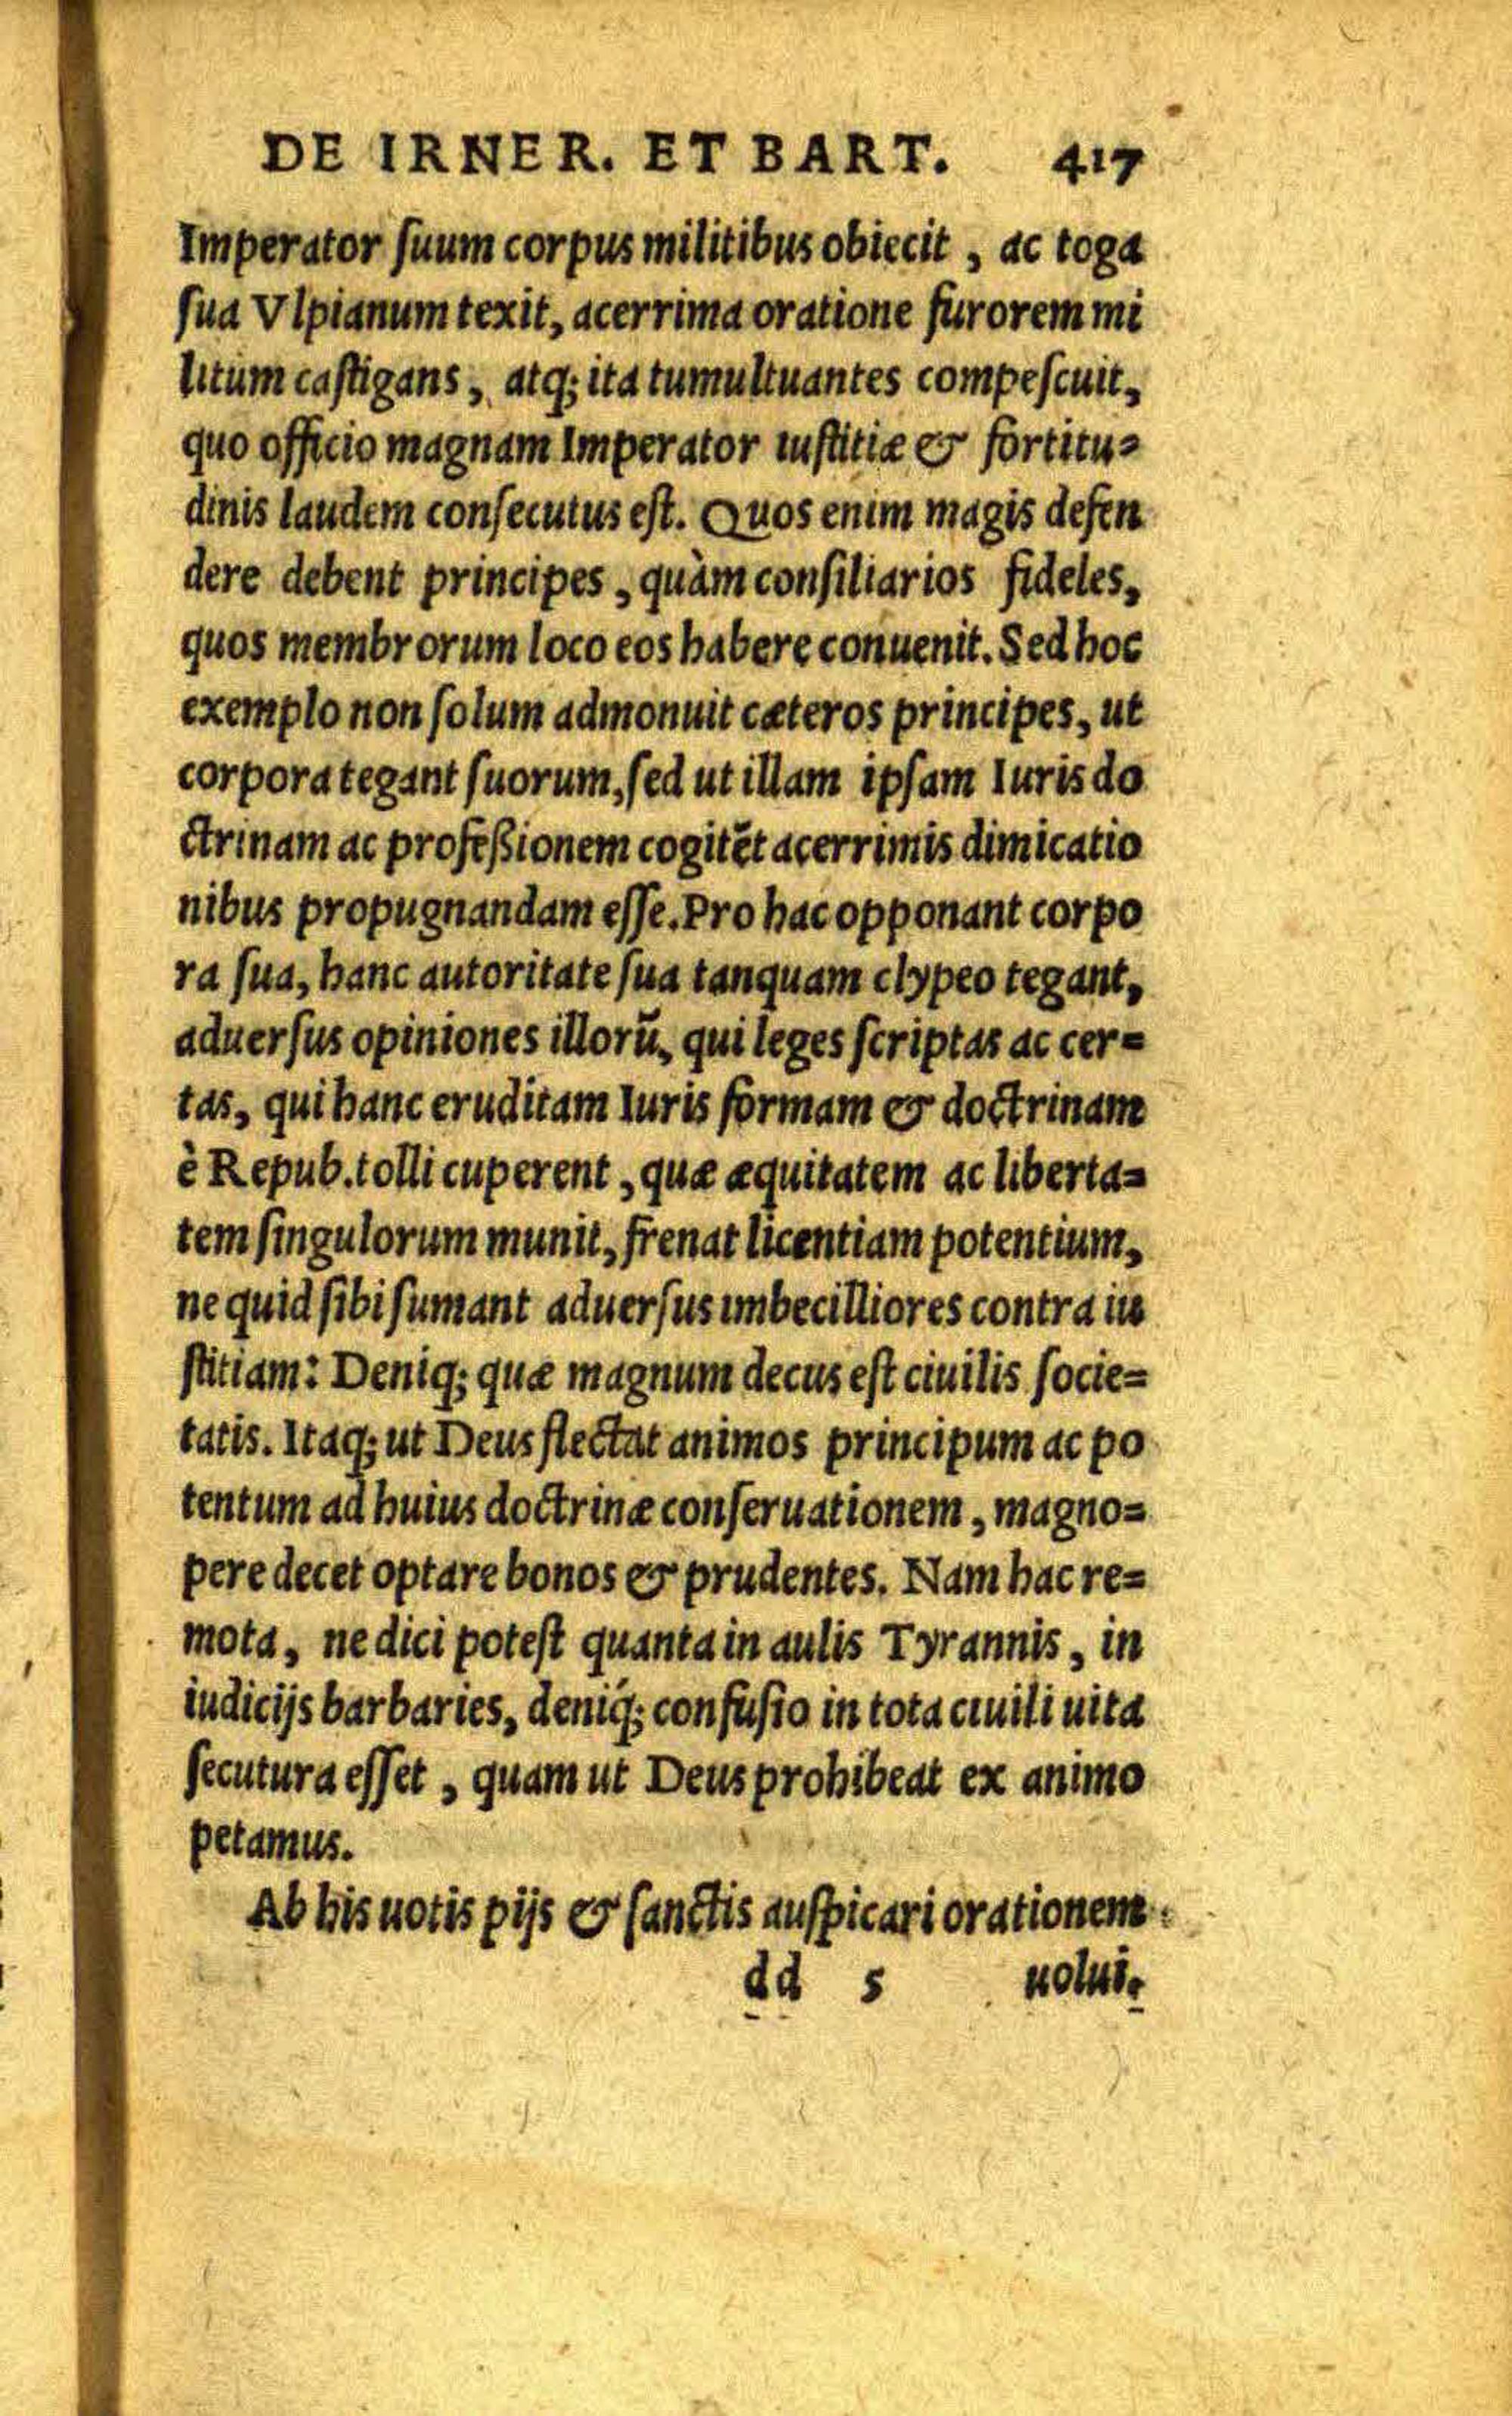 DE IRNER. ET BART. 417
Imperator ſuum corpus militibus obiecit, ac toga
ſua Vlpianum texit, acerrima oratione furorem mi
litum caſtigans, atq; ita tumultuantes compeſcuit,
quo officio magnam Imperator iuſtitiæ & fortitu=
dinis laudem conſecutus eſt. Quos enim magis defen
dere debent principes, quàm conſiliarios fideles,
quos membrorum loco eos habere conuenit. Sed hoc
exemplo non ſolum admonuit cæteros principes, ut
corpora tegant ſuorum, ſed ut illam ipſam Iuris do
ctrinam ac profeßionem cogitēt acerrimis dimicatio
nibus propugnandam eſſe. Pro hac opponant corpo
ra ſua, hanc autoritate ſua tanquam clypeo tegant,
aduerſus opiniones illorū, qui leges ſcriptas ac cer=
tas, qui hanc eruditam Iuris formam & doctrinam
è Repub. tolli cuperent, quæ æquitatem ac liberta=
tem ſingulorum munit, frenat licentiam potentium,
ne quid ſibi ſumant aduerſus imbecilliores contra iu
ſtitiam: Deniq; quæ magnum decus eſt ciuilis ſocie=
tatis. Itaq; ut Deus flectat animos principum ac po
tentum ad huius doctrinæ conſeruationem, magno=
pere decet optare bonos & prudentes. Nam hac re=
mota, ne dici poteſt quanta in aulis Tyrannis, in
iudicijs barbaries, deniq́; confuſio in tota ciuili uita
ſecutura eſſet, quam ut Deus prohibeat ex animo
petamus.
Ab his uotis pijs & ſanctis auſpicari orationem
dd 5 uolui.